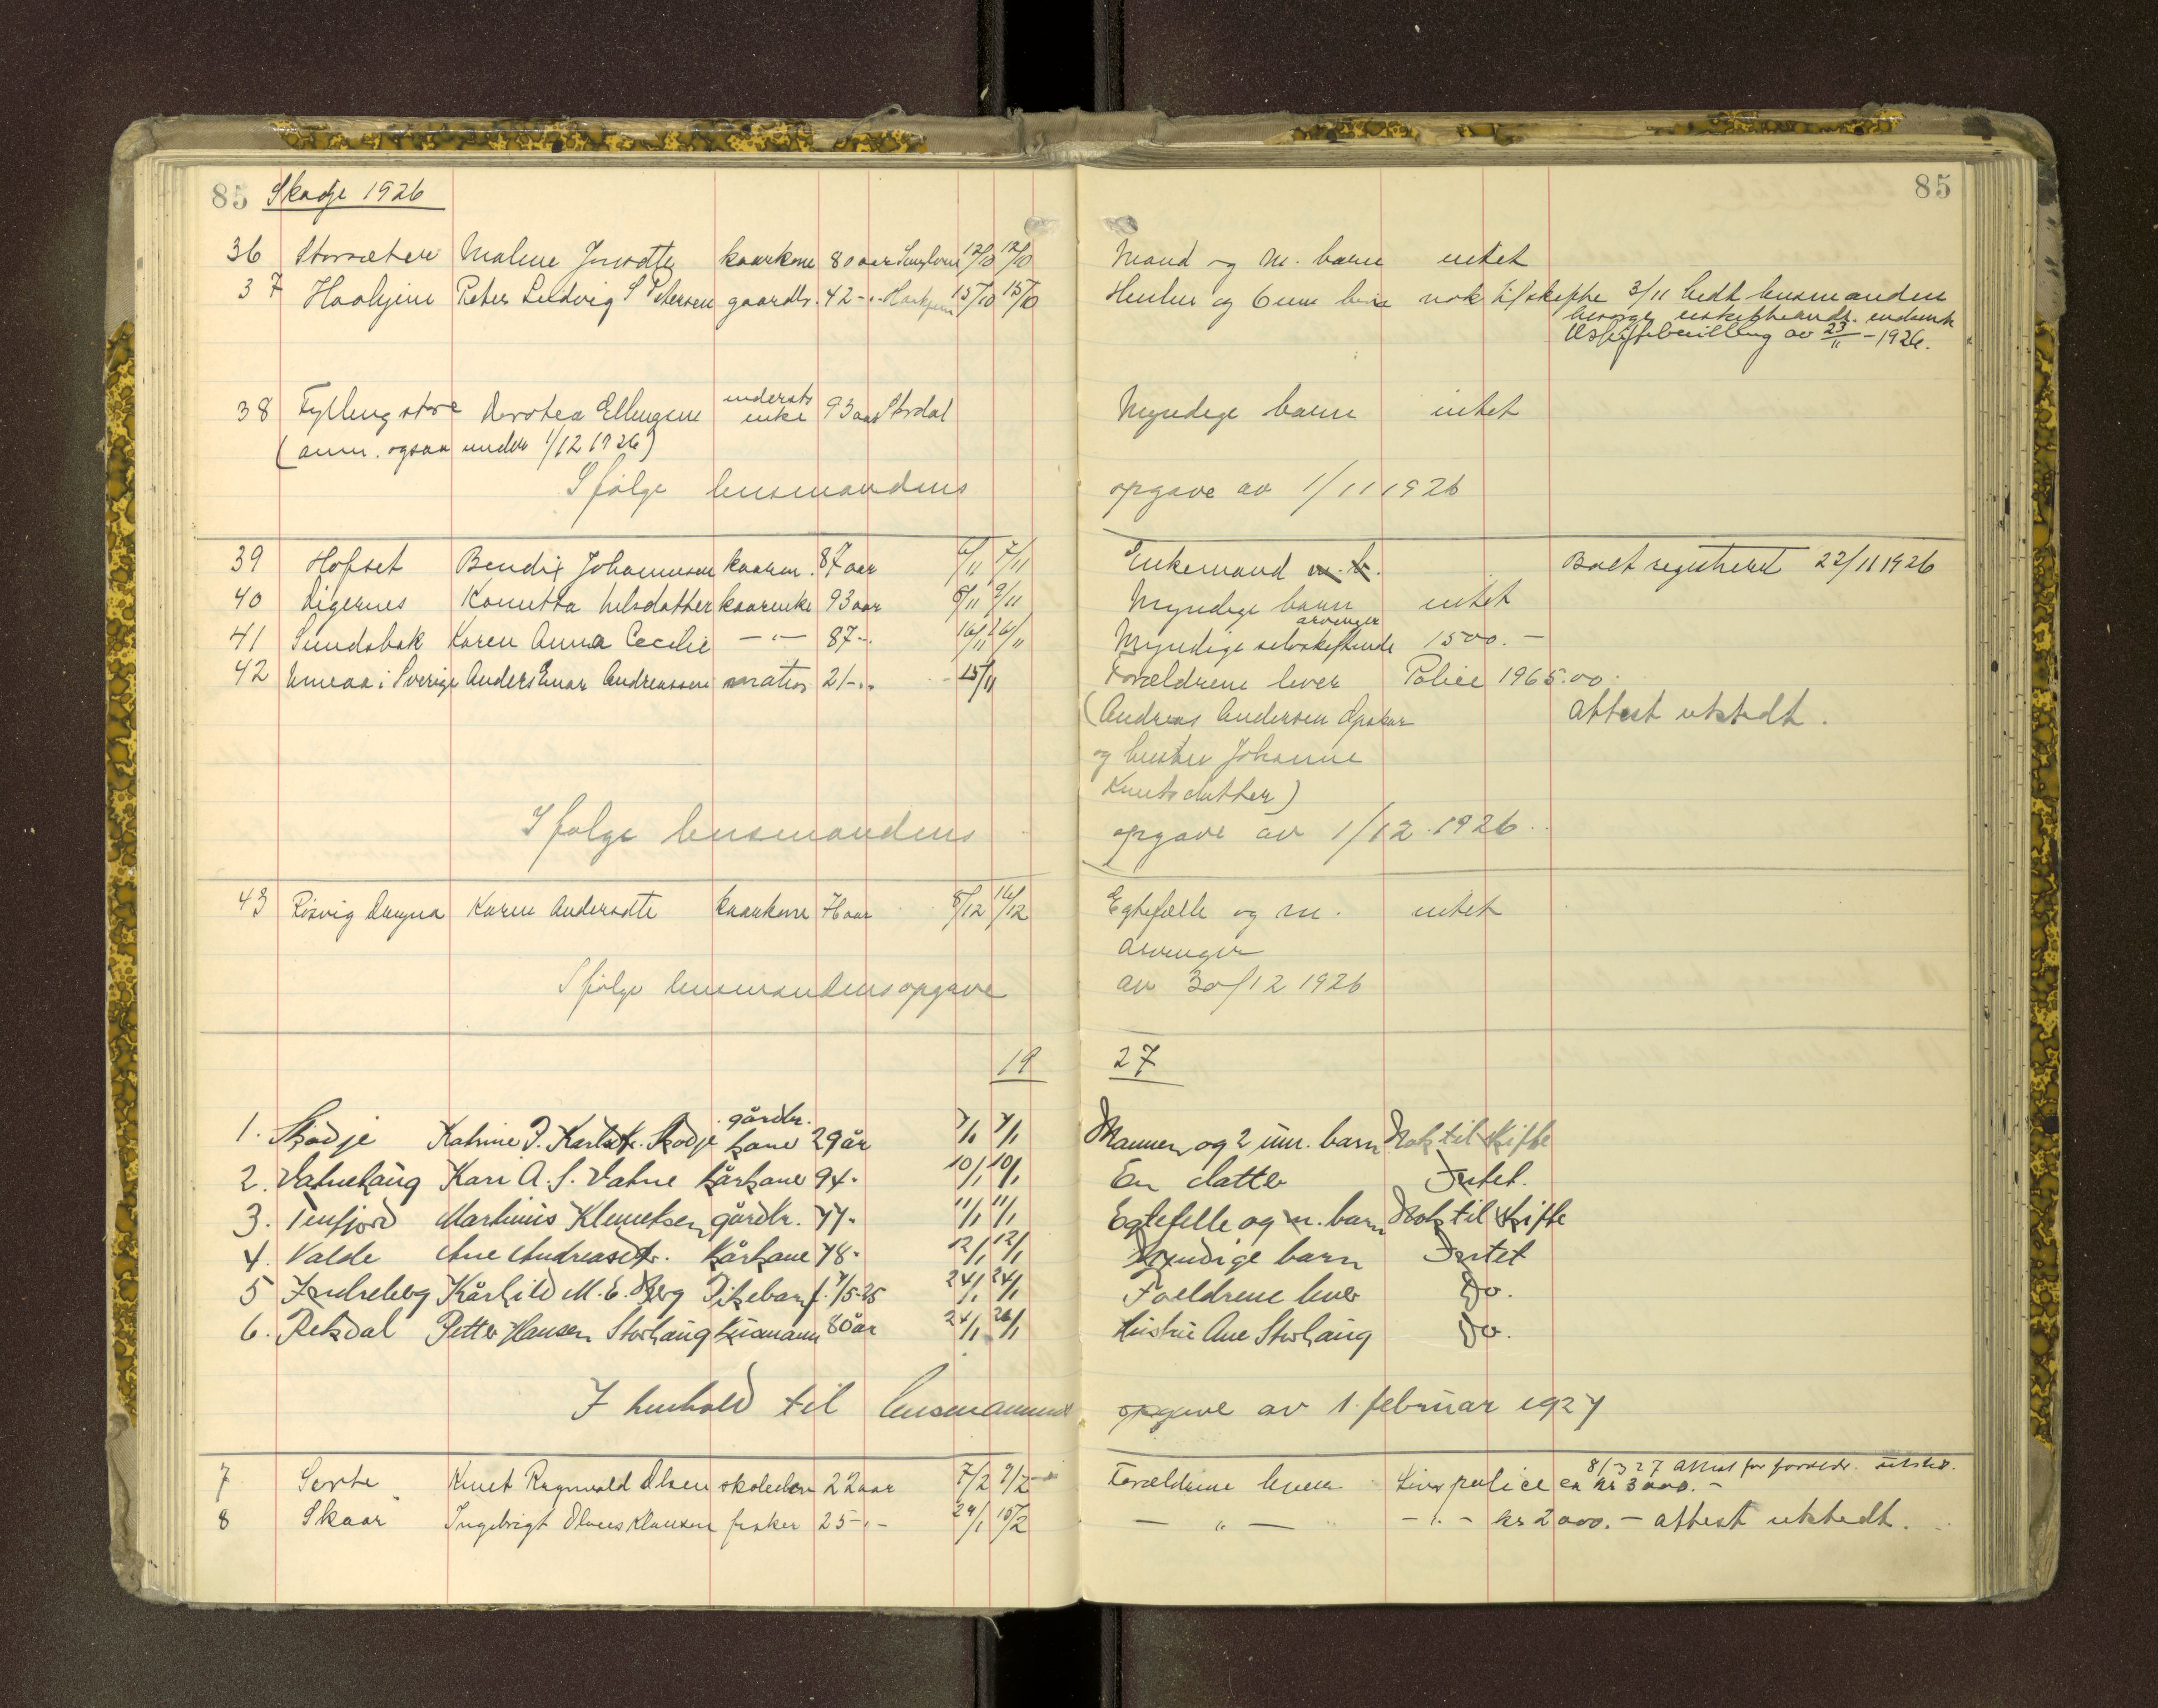 85 Skodje 1926 85
36 Storsæteren Malene Jonsdtr kaarkone 80 aar 12/10 12/10 Mand og m. barn intet
37 Peter Ludvig S Petersen gaardbr. 42 -"- 15/10 15/10 Hustru og 6 um. barn nok til skifte 3/11 bedt lensmanden
besørge
Uskiftebevilling av 23/11 - 1926.
38 Fylling store Dorotea Ellingsen underst. enke 93 aar Stordal Myndige barn intet
(anm. ogsaa under 1/12 1926)
Ifølge lensmandens opgave av 1/11 1926
39 Hofset Bendix Johannesen kaarm. 87 aar 6/11 7/11 Enkemand m. b. Boet registrert 22/11 1926
40 Digernes Nilsdatter kaarenke 93 aar 8/11 9/11 Myndige barn intet
41 Sundsbak Karen Anna Cecilie -"- 87 -"- 16/11 26/11 Myndige selvskiftende arvinger 1500.-
42 Umeaa i Sverige Anders Einar Andreassen matros 21 -"- 15/11 Forældrene lever Police 1965.00.
(Andreas Andersen Opskar attest utstedt.
og hustru Johanne
Knutsdatter)
Ifølge lensmandens opgave av 1/12 1926.
43 Røsvig Karen Andersdtr kaarkone 76 aar 8/12 16/12 Egtefælle og m. intet
arvinger
Ifølge lensmandens opgave av 30/12 1926
19 27
1. Skodje Katrine P. Karlsdtr. Skodje gårdbr. kone 29 år 7/1 7/1 Mannen og 2 um. barn Nok til skifte
2. Vatnehaug Kari A. S. Vatne kårkone 94 " 10/1 10/1 En datter Intet.
3. Tenfjord Martinus Klemetsen gårdbr. 77 " 11/1 11/1 Egtefelle og m. barn Nok til skifte
4. Valde Ane Andreasdtr. kårkone 78 " 12/1 12/1 Myndige barn Intet
5 Indreberg Kårhild M. E. Berg Pikebarn f. 7/5-25 24/1 24/1 Foreldrene lever Do.
6. Reksdal Petter Hansen Storhaug husmann 80 år 24/1 26/1 Hustru Ane Storhaug Do.
I henhold til lensmannens opgave av 1. februar 1927
8/3 27 Attest for foreldr. utsted.
7 Sorte Knut Ragnvald Olsen 22 aar 7/2 9/2 Forældrene lever Livspolice ca kr 3000.-
8 Skaar Ingebrigt Klausen fisker 25 -"- 24/1 15/2 - " - -"- kr 2000.- attest utstedt.